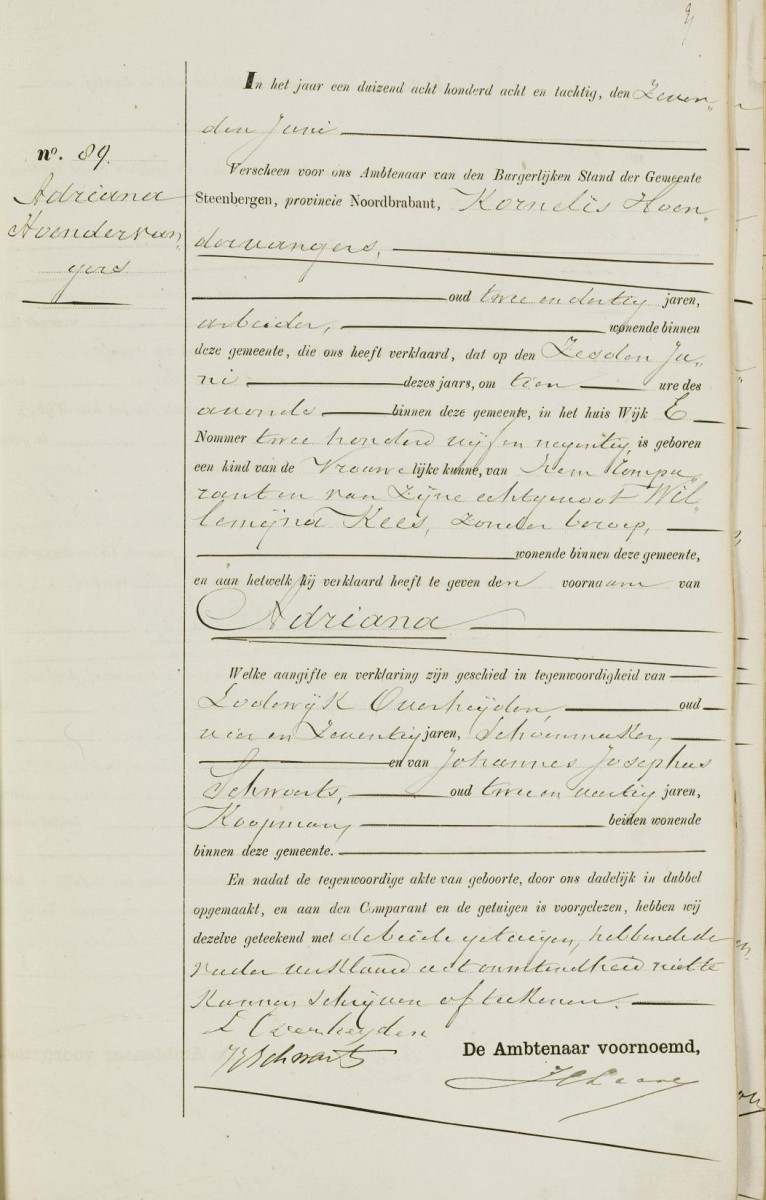 nº. 89.
Adriana
Hoendervan„
gers
In het jaar een duizend acht honderd acht en tachtig, den Zeven„
den Juni
Verscheen voor ons Ambtenaar van den Burgerlijken Stand der Gemeente
Steenbergen, provincie Noordbrabant, Kornelis Hoen„
dervangers,
oud twee en dertig jaren,
arbeider, wonende binnen
deze gemeente, die ons heeft verklaard, dat op den Zesden Ju„
ni dezes jaars, om tien ure des
avonds binnen deze gemeente, in het huis Wijk E
Nommer twee honderd vijf en negentig, is geboren
een kind van de Vrouwelijke kunne, van hem Compa„
rant en van Zijne echtgenoot Wil„
lemijna Kees, zonder beroep,
wonende binnen deze gemeente,
en aan hetwelk hij verklaard heeft te geven den voornaam van
Adriana
Welke aangifte en verklaring zijn geschied in tegenwoordigheid van
Lodewijk Overheijden, oud
vier en Zeventig jaren, Schoenmaker,
en van Johannes Josephus
Schwarts, oud twee en veertig jaren,
Koopman, beiden wonende
binnen deze gemeente.
En nadat de tegenwoordige akte van geboorte, door ons dadelijk in dubbel
opgemaakt, en aan den Comparant en de getuigen is voorgelezen, hebben wij
dezelve geteekend met de beide getuigen, hebbende de
Vader verklaard uit onwetendheid niet te
Kunnen Schrijven of teekenen.
L Overheyden
Schwarts
De Ambtenaar voornoemd,